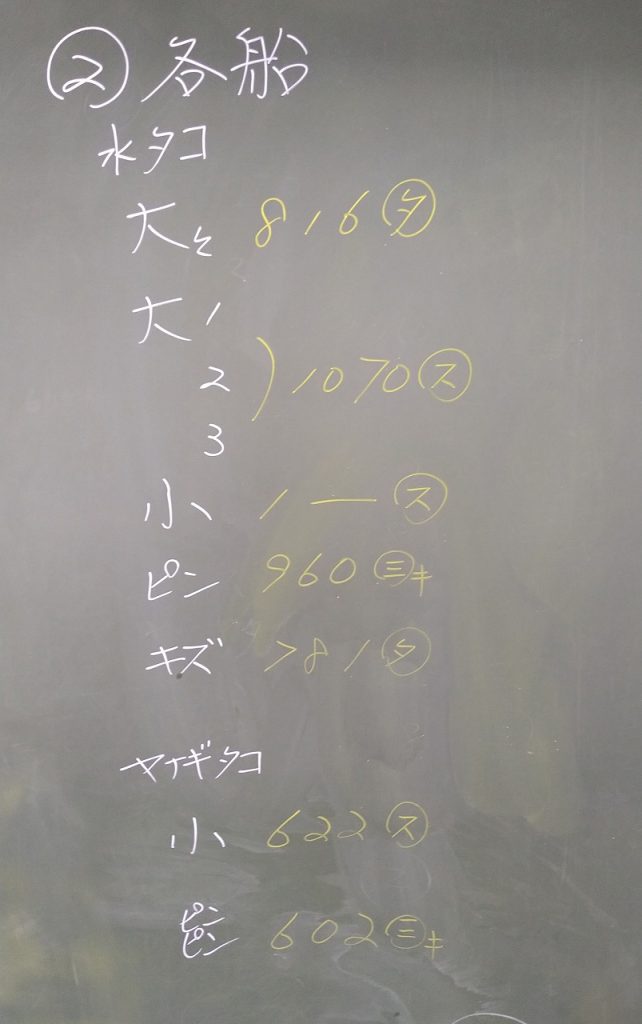 ② 各船
水タコ
大そ 816 タ
大1
2 ) 1070 ス
3
小 1 — ス
ピン 960 三キ
キズ 781 タ
ヤナギタコ
小 622 ス
ピンピン 602 三キ